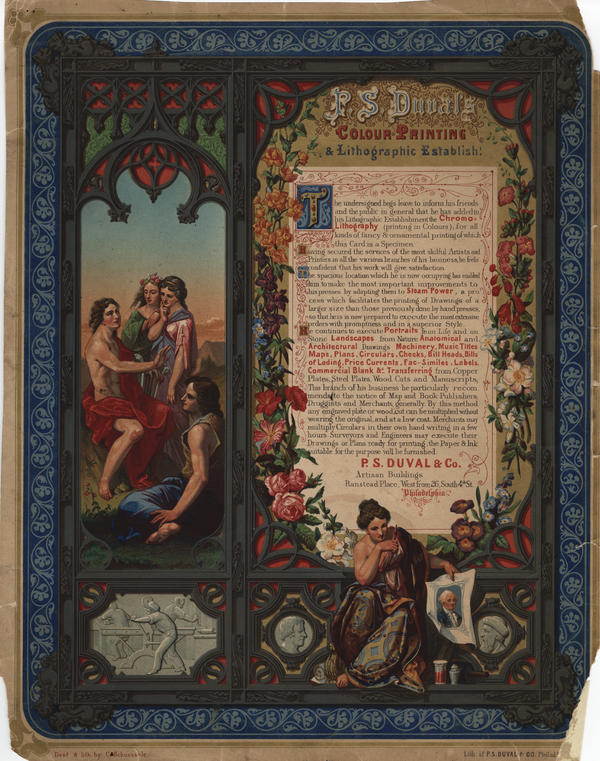 P. S. Duval's
COLOUR-PRINTING
& Lithographic Establish!
The undersigned begs leave to inform his friends
and the public in general that he has added in
his Lithographic Establishment the Chromo-
Lithography (printing in Colours), for all
kinds of fancy & ornamental printing of which
this Card is a Specimen.
Having secured the services of the most skilful Artists and
Printers in all the various branches of his business, he feels
confident that his work will give satisfaction.
The spacious location which he is now occupying has enabled
him to make the most important improvements to
his presses by adapting them to Steam Power, a pro-
cess which facilitates the printing of Drawings of a
larger size than those previously done by hand presses,
so that he is now prepared to execute the most extensive
orders with promptness and in a superior Style.
He continues to execute Portraits from Life and on
Stone Landscapes from Nature Anatomical and
Architectural Drawings Machinery, Music Titles
Maps, Plans, Circulars, Checks, Bill Heads, Bills
of Lading, Price Currents, Fac-Similes, Labels,
Commercial Blank &c. Transferring from Copper
Plates, Steel Plates, Wood Cuts and Manuscripts,
This branch of his business he particularly recom
mends to the notice of Map and Book Publishers
Druggists and Merchants, generally. By this method
any engraved plate or wood cut can be multiplied without
wearing the original, and at a low cost. Merchants may
multiply Circulars in their own hand writing in a few
hours. Surveyors and Engineers may execute their
Drawings or Plans ready for printing, the Paper & Ink
suitable for the purpose will be furnished.
P. S. DUVAL & Co.
Artisan Buildings
Ranstead Place, West from 26, South 4th St.
Philadelphia.
Des.d & lith. by C. Schuessele
Lith. of P.S. DUVAL & CO. Philad